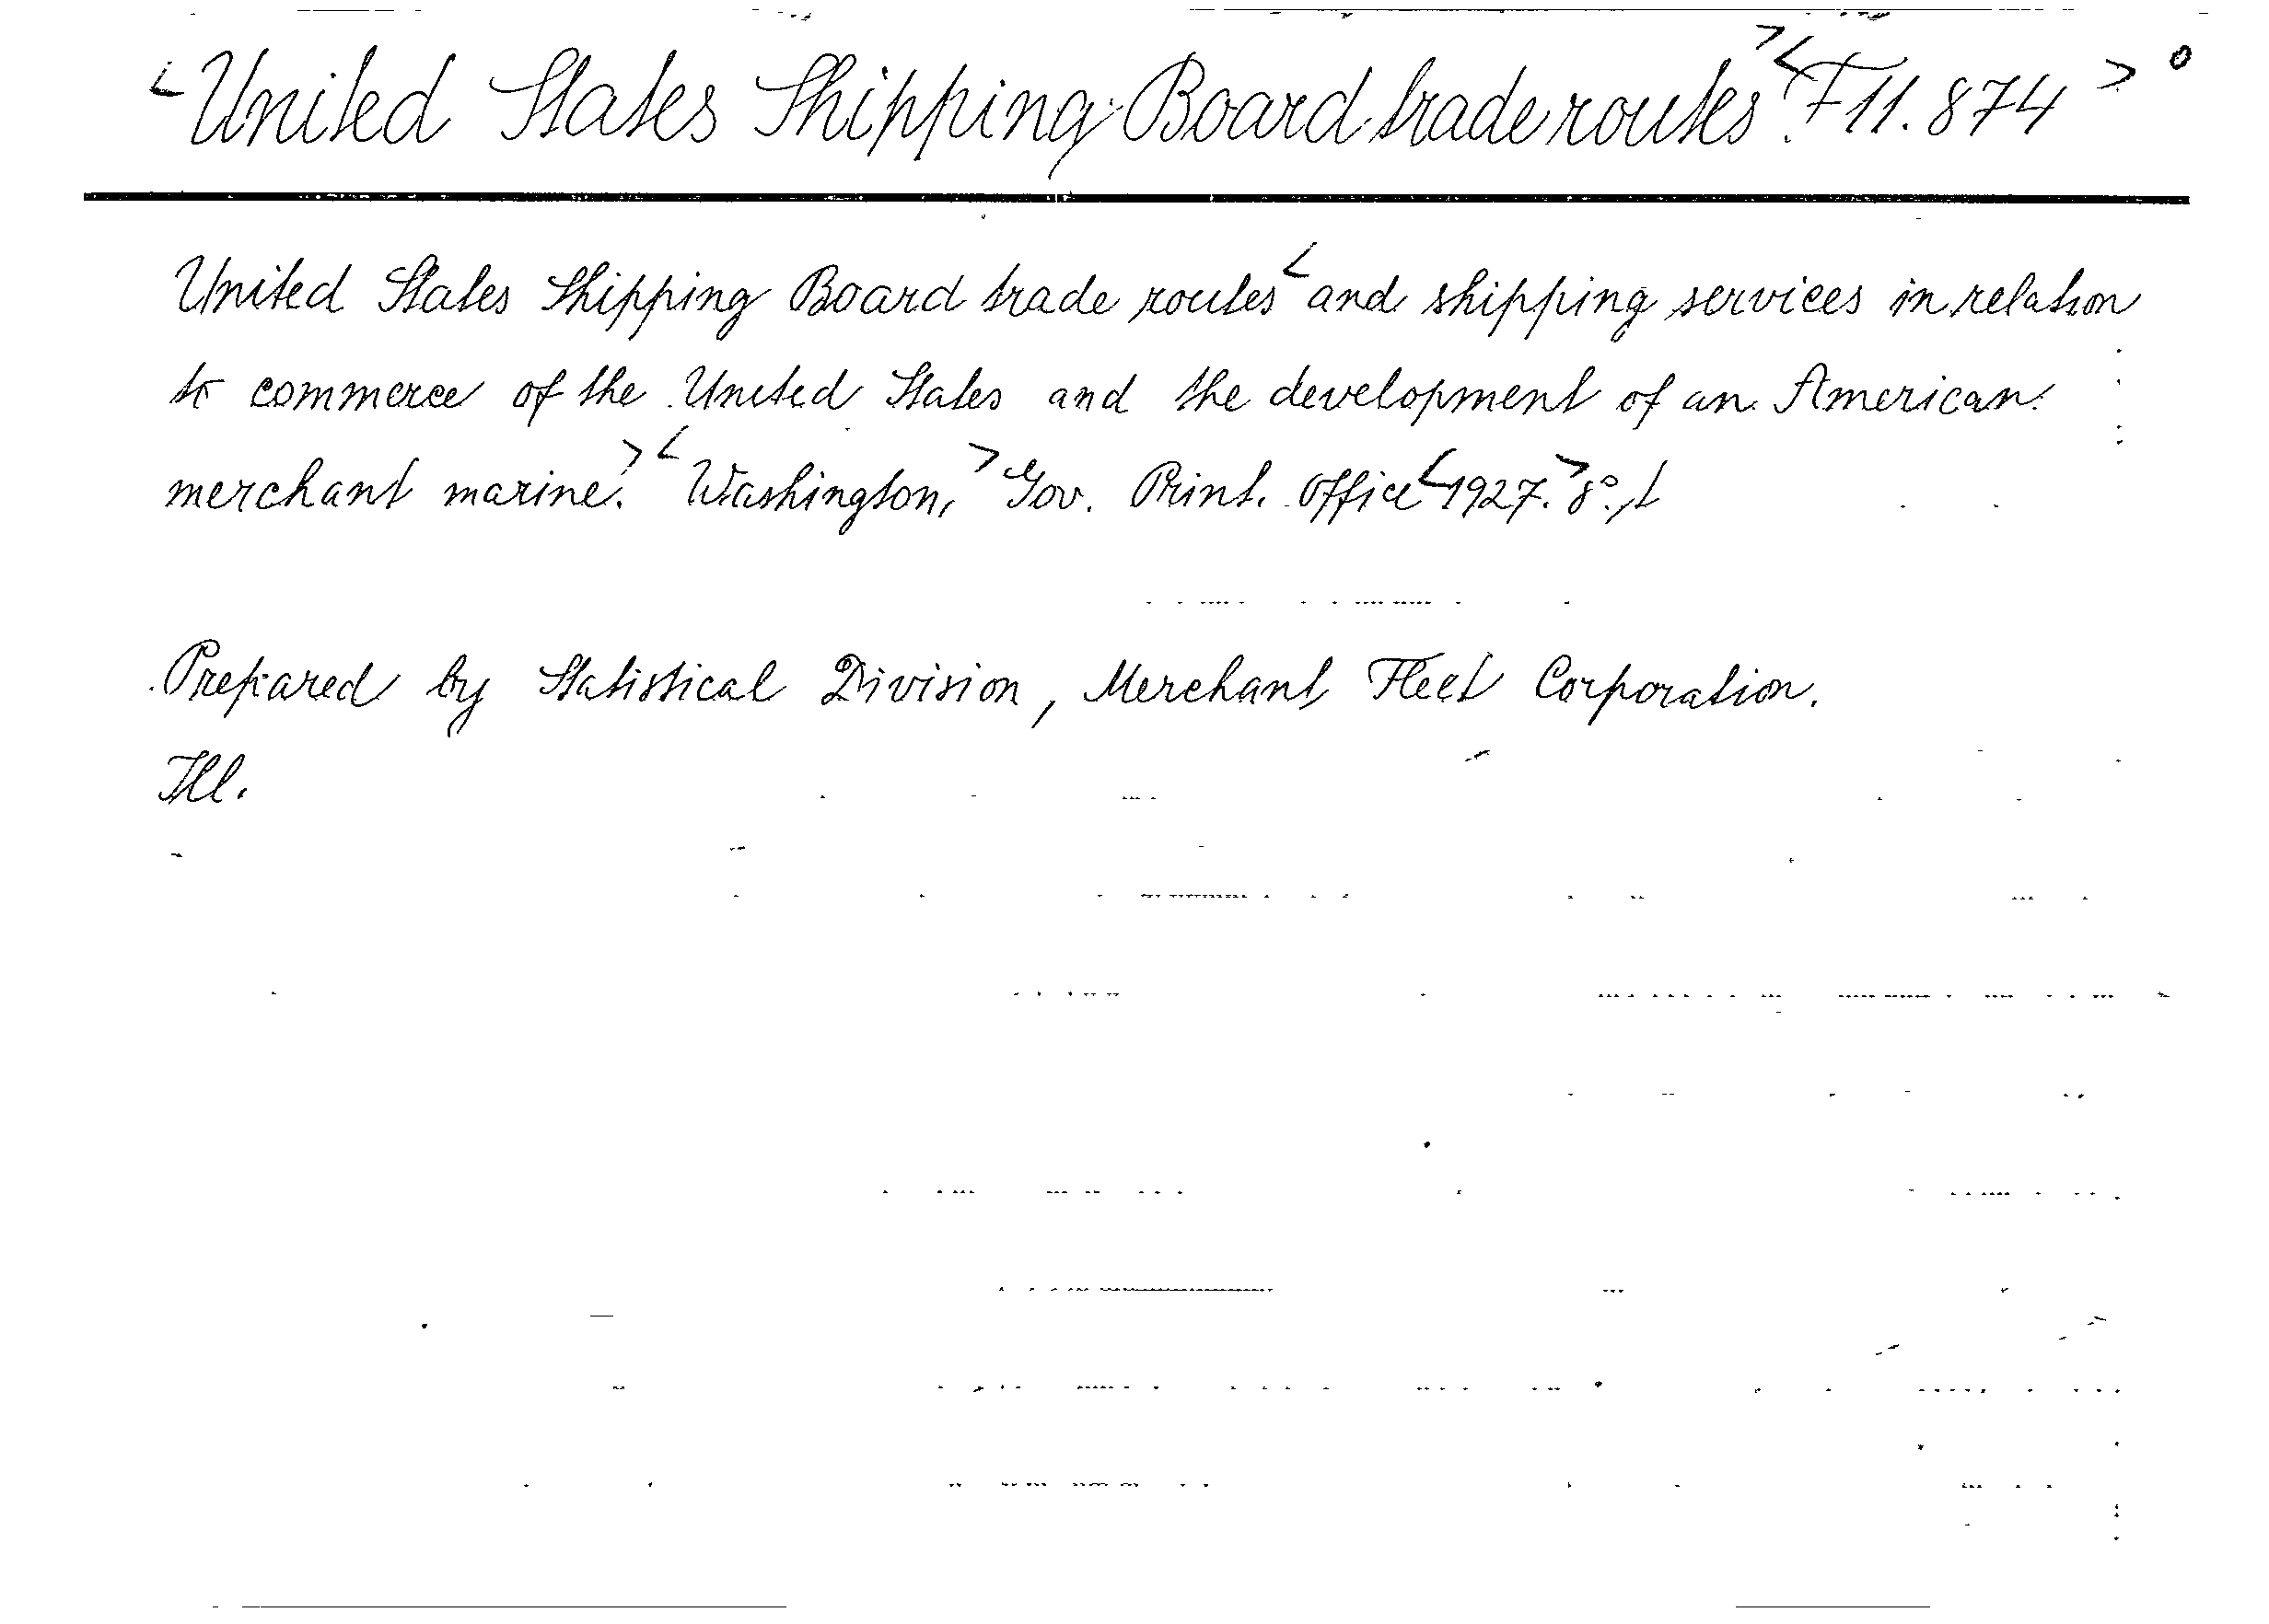 <United States Shipping Board trade routes.><F 11.874> o
United States Shipping Board trade routes <and shipping services in relation
to commerce of the United States and the development of an American
merchant marine.> <Washington,> Gov. Print. Office <1927.> 8°.
Prepared by Statistical Division, Merchant Fleet Corporation.
Ill.